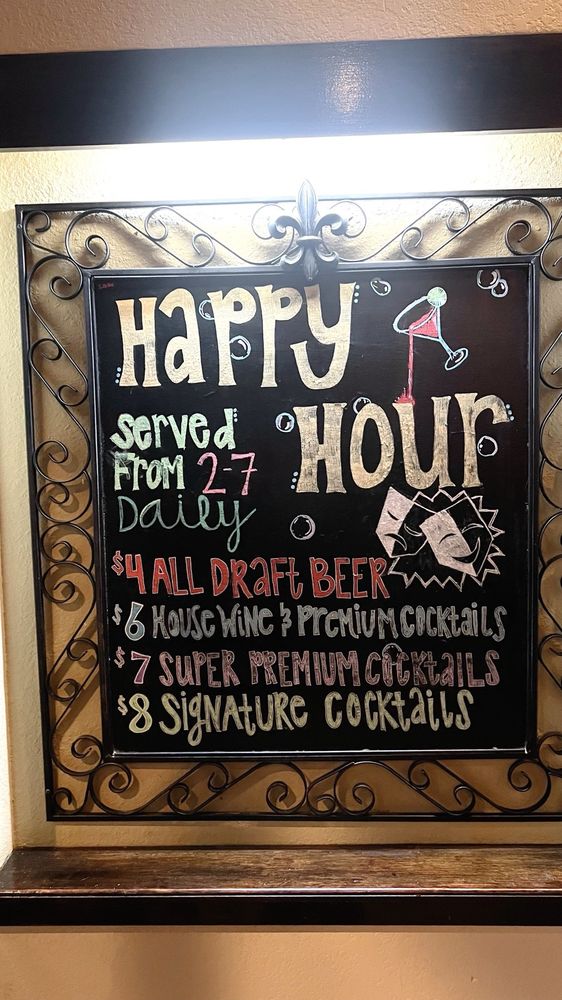 Happy
Hour
Served
From 2-7
Daily
$4 ALL DRaft BEER
$6 House Wine & Premium Cocktails
$7 SUPER PREMIUM COCKtails
$8 SigNATURE Cocktails